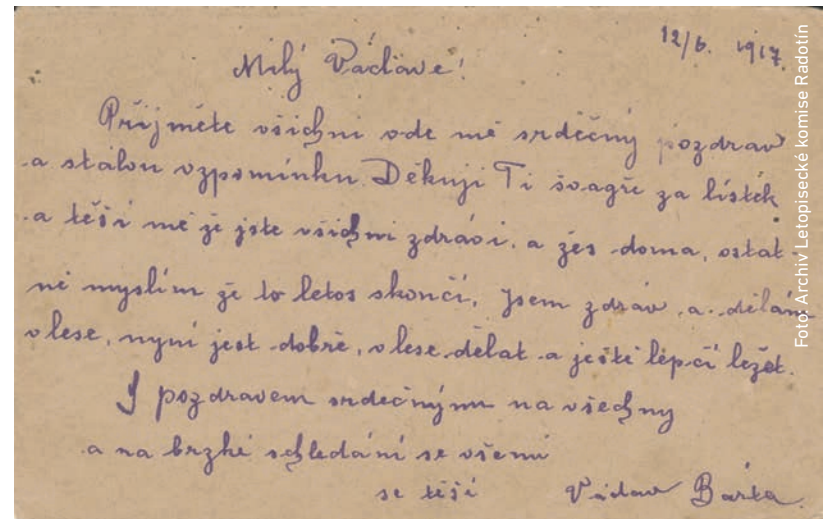 12/6. 1917.
Milý Václave!
Přijměte všichni ode mě srdečný pozdrav
a stálou vzpomínku. Děkuji Ti švagře za lístek
a těší mě že jste všichni zdrávi, a žes doma, ostat-
ně myslím že to letos skončí. Jsem zdráv, a dělám
v lese, nyní jest dobře, v lese dělat a ještě lépčí ležet.
S pozdravem srdečným na všechny
a na brzké schledání se všemi
se těší Václav Bárta.
Foto: Archiv Letopisecké komise Radotín